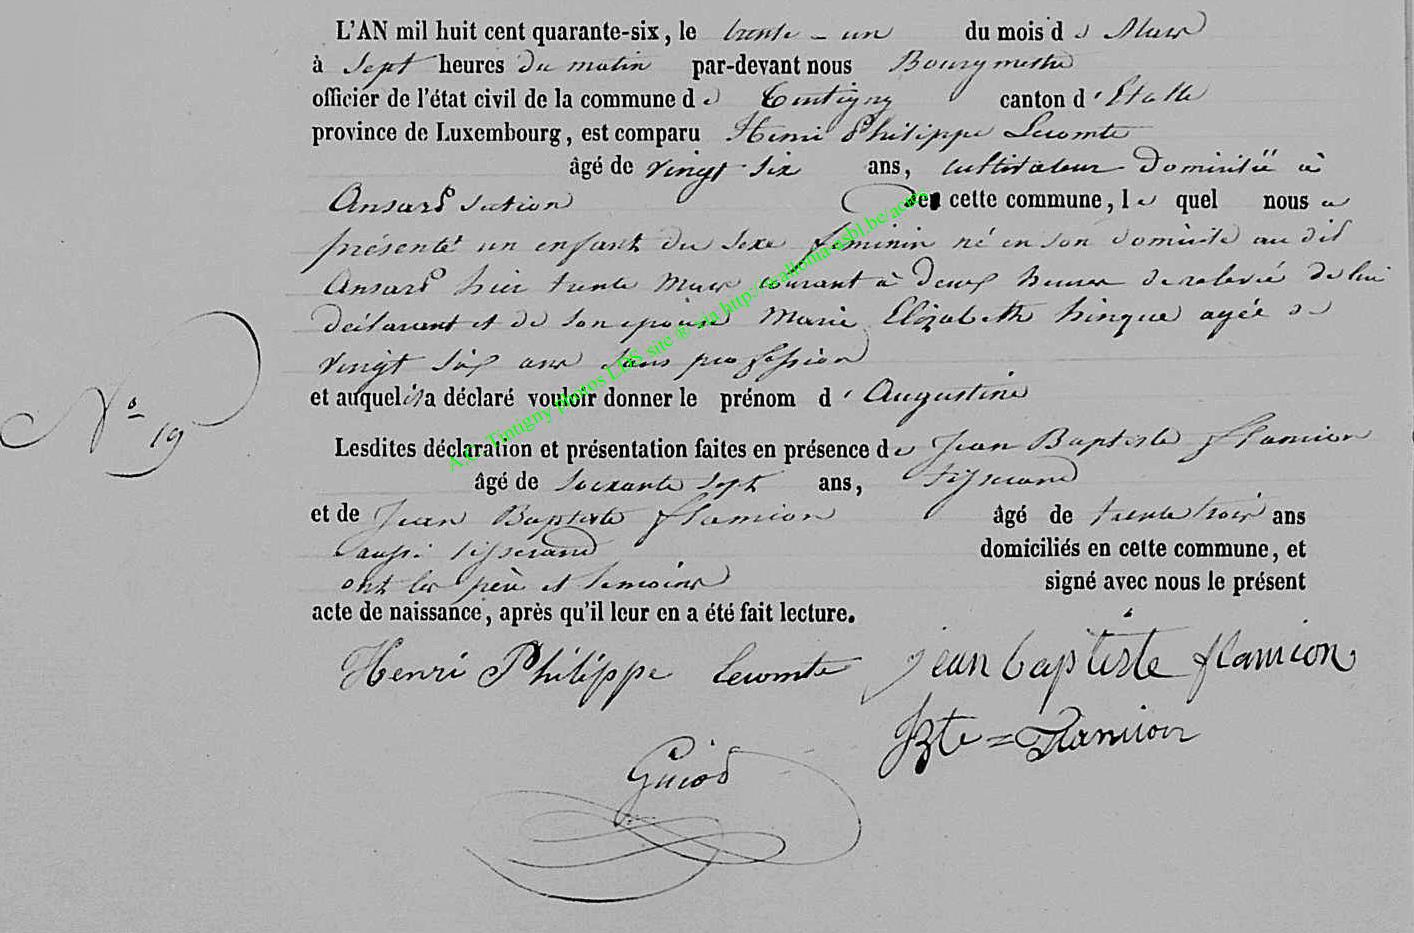 L'AN mil huit cent quarante-six, le trente-un du mois de Mars
à Sept heures du matin par-devant nous Bourgmestre
officier de l'état civil de la commune de Tintigny canton d'Etalle
province de Luxembourg, est comparu Henri Philippe Lecomte
âgé de vingt-six ans, cultivateur Domicilié à
Ansart Section de cette commune, le quel nous a
présenté un enfant du Sexe féminin né en son domicile au dit
Ansart hier trente Mars courant à deux heures de relevée de lui
déclarant et de son épouse Marie Elizabeth hinque agée de
vingt six ans sans profession
et auquel il a déclaré vouloir donner le prénom d'Augustine
N° 19
Lesdites déclaration et présentation faites en présence de Jean Baptiste flamion
âgé de soixante sept ans, tisserand
et de Jean Baptiste flamion âgé de trente trois ans
aussi tisserand domiciliés en cette commune, et
ont les père et temoins signé avec nous le présent
acte de naissance, après qu'il leur en a été fait lecture.
Henri Philippe Lecomte jean baptiste flamion
JBte = Flamion
Guiod
A.C. Tintigny photos LDS site ® via http://scallonia-asbl.be/actes